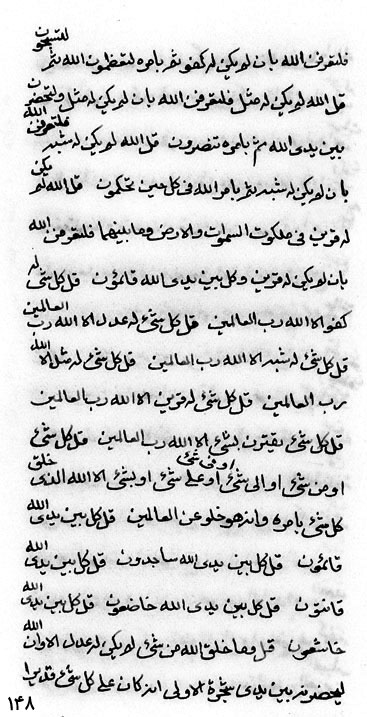 لتسبحون
فلتعرفن الله بان لم يكن له كفو ثم بامره لتعظمون الله ثم
قل الله لم يكن له مثل فلتعرفن الله بان لم يكن له مثل ولتحضرن
بين يدى الله ثم بامره تنصرون قل الله لم يكن له شبه فلتعرفن الله
بان لم يكن له شبه ثم بامر الله فى كل حين تحكمون قل الله لم يكن
له قرين فى ملكوت السموات والارض وما بينهما فلتعرفن الله
بان لم يكن له قرين وكل بين يدى الله قائمون قل كل شئ له
كفو الا الله رب العالمين قل كل شئ له عدل الا الله رب العالمين
قل كل شئ له شبه الا الله رب العالمين قل كل شئ له مثل الا الله
رب العالمين قل كل شئ له قرين الا الله رب العالمين
قل كل شئ يقترن بشئ الا الله رب العالمين قل كل شئ
او من شئ او الى شئ او فى شئ او على شئ او بشئ الا الله الذى خلق
كل شئ بامره وانه هو خلو عن العالمين قل كل بين يدى الله
قائمون قل كل بين يدى الله ساجدون قل كل بين يدى الله
قانتون قل كل بين يدى الله خاضعون قل كل بين يدى الله
خاشعون قل وما خلق الله من شئ لم يكن له عدل الا وان
ليحضرنه بين يدى شجرة الاولى انه كان على كل شئ قديرا
۱۴۸